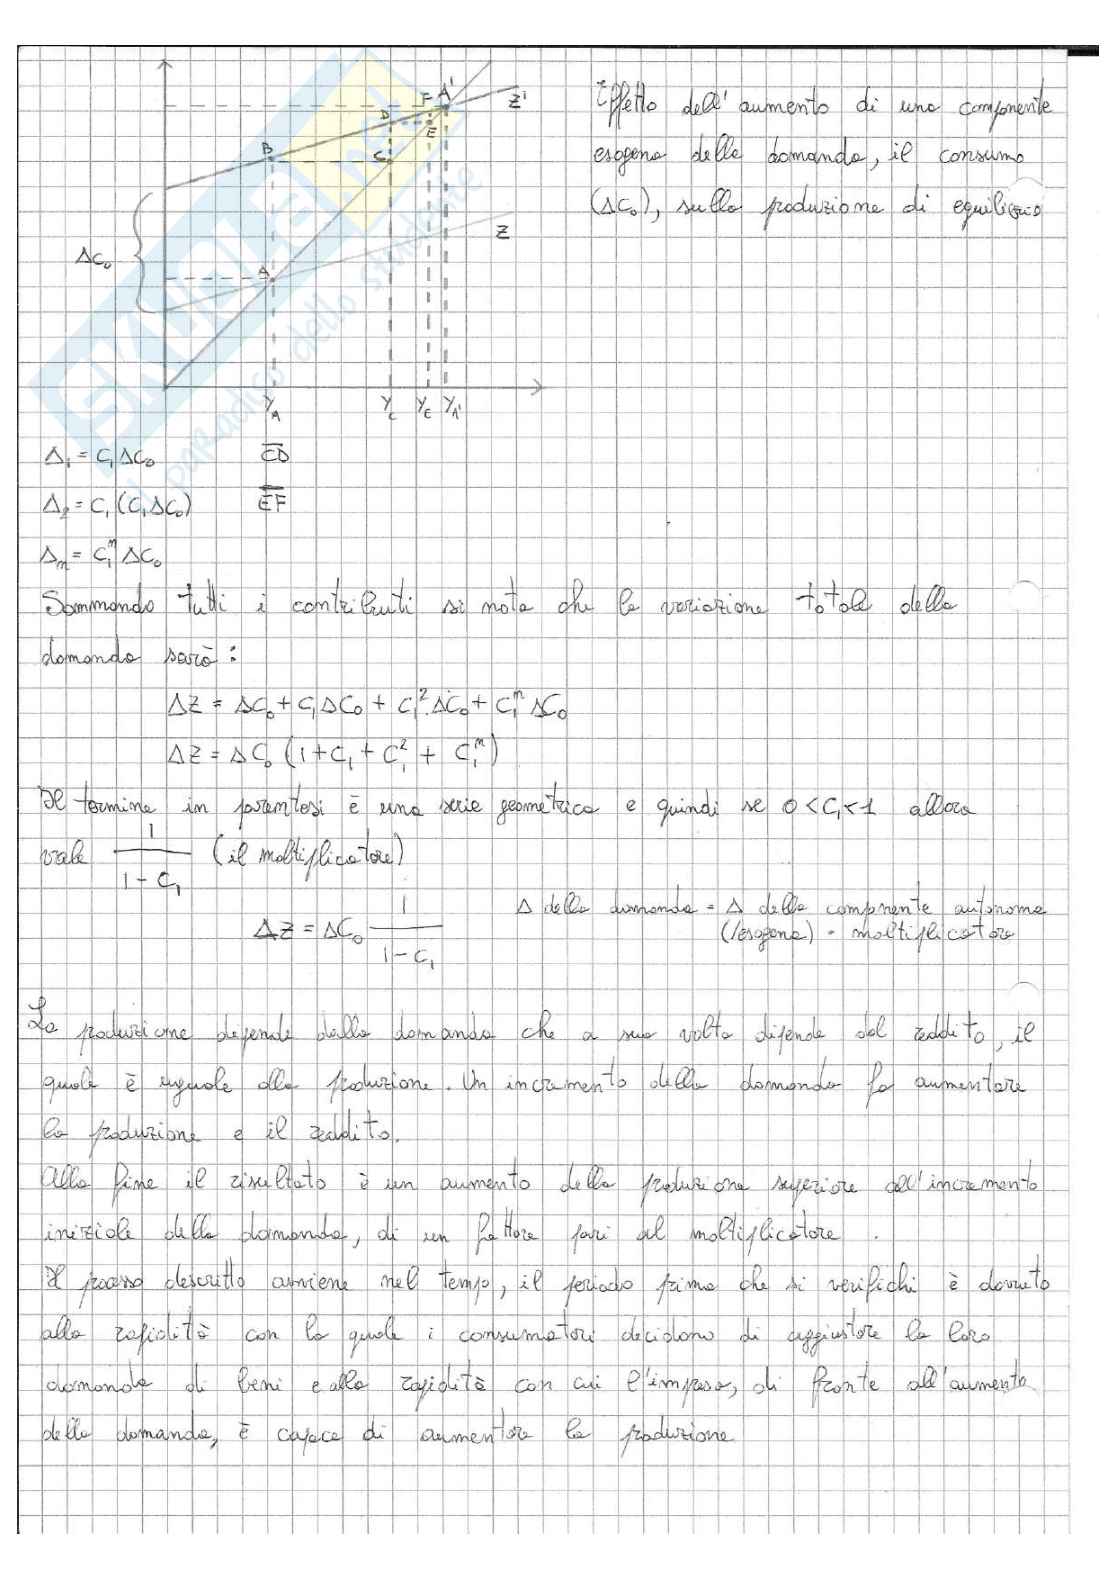 Effetto dell'aumento di una componente
esogena della domanda, il consumo
(ΔC₀), sulla produzione di equilibrio
F A' Z'
D
E
B
C
Z
ΔC₀
A
Y_A Y_C Y_E Y_A'
SKUOLA.net
il paradiso dello studente
Δ₁ = C₁ΔC₀ CD
Δ₂ = C₁(C₁ΔC₀) EF
Δₙ = C₁ⁿ ΔC₀
Sommando tutti i contributi si nota che la variazione totale della
domanda sarà:
ΔZ = ΔC₀ + C₁ΔC₀ + C₁²ΔC₀ + C₁ⁿ ΔC₀
ΔZ = ΔC₀ (1 + C₁ + C₁² + C₁ⁿ)
Il termine in parentesi è una serie geometrica e quindi se 0 < C₁ < 1 allora
vale 1/(1 - C₁) (il moltiplicatore)
ΔZ = ΔC₀ 1/(1 - C₁)
Δ della domanda = Δ della componente autonoma
(/esogena) · moltiplicatore
La produzione dipende dalla domanda che a sua volta dipende dal reddito, il
quale è uguale alla produzione. Un incremento della domanda fa aumentare
la produzione e il reddito.
Alla fine il risultato è un aumento della produzione superiore all'incremento
iniziale della domanda, di un fattore pari al moltiplicatore.
Il processo descritto avviene nel tempo, il periodo prima che si verifichi è dovuto
alla rapidità con la quale i consumatori decidono di aggiustare la loro
domanda di beni e alla rapidità con cui l'impresa, di fronte all'aumento
della domanda, è capace di aumentare la produzione